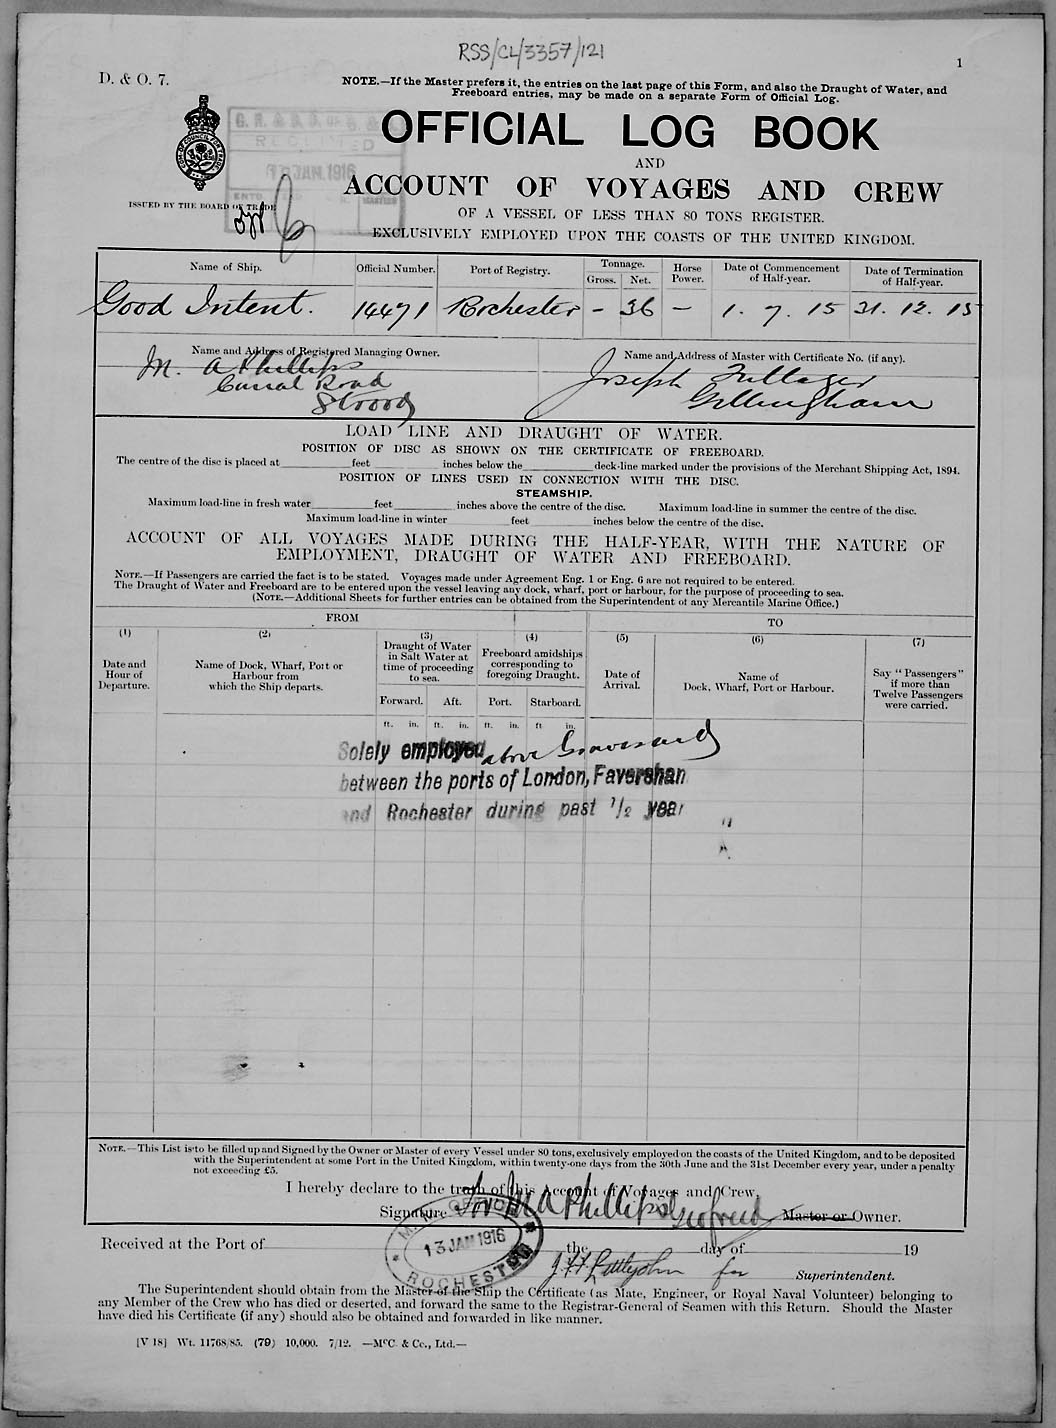 RSS/CL/3357/121
1
D. & O. 7.
NOTE.—If the Master prefers it, the entries on the last page of this Form, and also the Draught of Water, and
Freeboard entries, may be made on a separate Form of Official Log.
OFFICIAL LOG BOOK
AND
ACCOUNT OF VOYAGES AND CREW
OF A VESSEL OF LESS THAN 80 TONS REGISTER.
EXCLUSIVELY EMPLOYED UPON THE COASTS OF THE UNITED KINGDOM.
ISSUED BY THE BOARD OF TRADE
RECEIVED
JAN. 1916
Name of Ship. Official Number. Port of Registry. Tonnage. Horse Power. Date of Commencement of Half-year. Date of Termination of Half-year.
Gross. Net.
Good Intent. 14471 Rochester - 36 - 1. 7. 15 31. 12. 15
Name and Address of Registered Managing Owner. Name and Address of Master with Certificate No. (if any).
M. A Phillips
Canal Road
Strood
Joseph Fullager
Gillingham
LOAD LINE AND DRAUGHT OF WATER.
POSITION OF DISC AS SHOWN ON THE CERTIFICATE OF FREEBOARD.
The centre of the disc is placed at feet inches below the deck-line marked under the provisions of the Merchant Shipping Act, 1894.
POSITION OF LINES USED IN CONNECTION WITH THE DISC.
STEAMSHIP.
Maximum load-line in fresh water feet inches above the centre of the disc. Maximum load-line in summer the centre of the disc.
Maximum load-line in winter feet inches below the centre of the disc.
ACCOUNT OF ALL VOYAGES MADE DURING THE HALF-YEAR, WITH THE NATURE OF
EMPLOYMENT, DRAUGHT OF WATER AND FREEBOARD.
NOTE.—If Passengers are carried the fact is to be stated. Voyages made under Agreement Eng. 1 or Eng. 6 are not required to be entered.
The Draught of Water and Freeboard are to be entered upon the vessel leaving any dock, wharf, port or harbour, for the purpose of proceeding to sea.
(NOTE.—Additional Sheets for further entries can be obtained from the Superintendent of any Mercantile Marine Office.)
FROM TO
(1) (2) (3) (4) (5) (6) (7)
Date and Hour of Departure.
Name of Dock, Wharf, Port or Harbour from which the Ship departs.
Draught of Water in Salt Water at time of proceeding to sea.
Freeboard amidships corresponding to foregoing Draught.
Date of Arrival.
Name of Dock, Wharf, Port or Harbour.
Say "Passengers" if more than Twelve Passengers were carried.
Forward. Aft. Port. Starboard.
ft. in. ft. in. ft. in. ft in.
Solely employed above Gravesend
between the ports of London, Faversham
and Rochester during past 1/2 year
NOTE.—This List is to be filled up and Signed by the Owner or Master of every Vessel under 80 tons, exclusively employed on the coasts of the United Kingdom, and to be deposited
with the Superintendent at some Port in the United Kingdom, within twenty-one days from the 30th June and the 31st December every year, under a penalty
not exceeding £5.
I hereby declare to the truth of this Account of Voyages and Crew,
Signature For M A Phillips Master or Owner.
M. M. OFFICE
13 JAN 1916
ROCHESTER
Received at the Port of the day of 19
for Superintendent.
The Superintendent should obtain from the Master of the Ship the Certificate (as Mate, Engineer, or Royal Naval Volunteer) belonging to
any Member of the Crew who has died or deserted, and forward the same to the Registrar-General of Seamen with this Return. Should the Master
have died his Certificate (if any) should also be obtained and forwarded in like manner.
[V 18] Wt. 11768/85. (79) 10,000. 7/12. —McC. & Co., Ltd.—